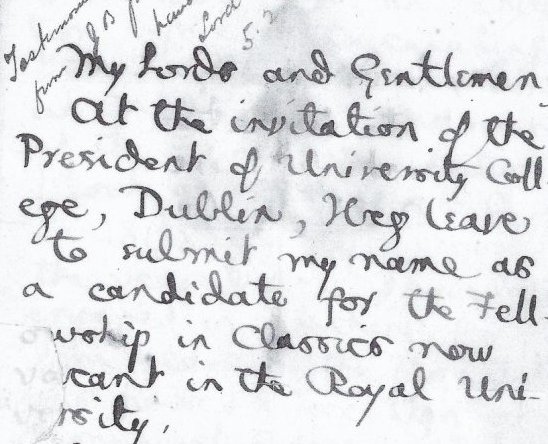 Testimon
from
Lord
My Lords and Gentlemen
At the invitation of the
President of University Coll-
ege, Dublin, I beg leave
to submit my name as
a candidate for the Fell-
owship in Classics now
vacant in the Royal Uni-
versity.